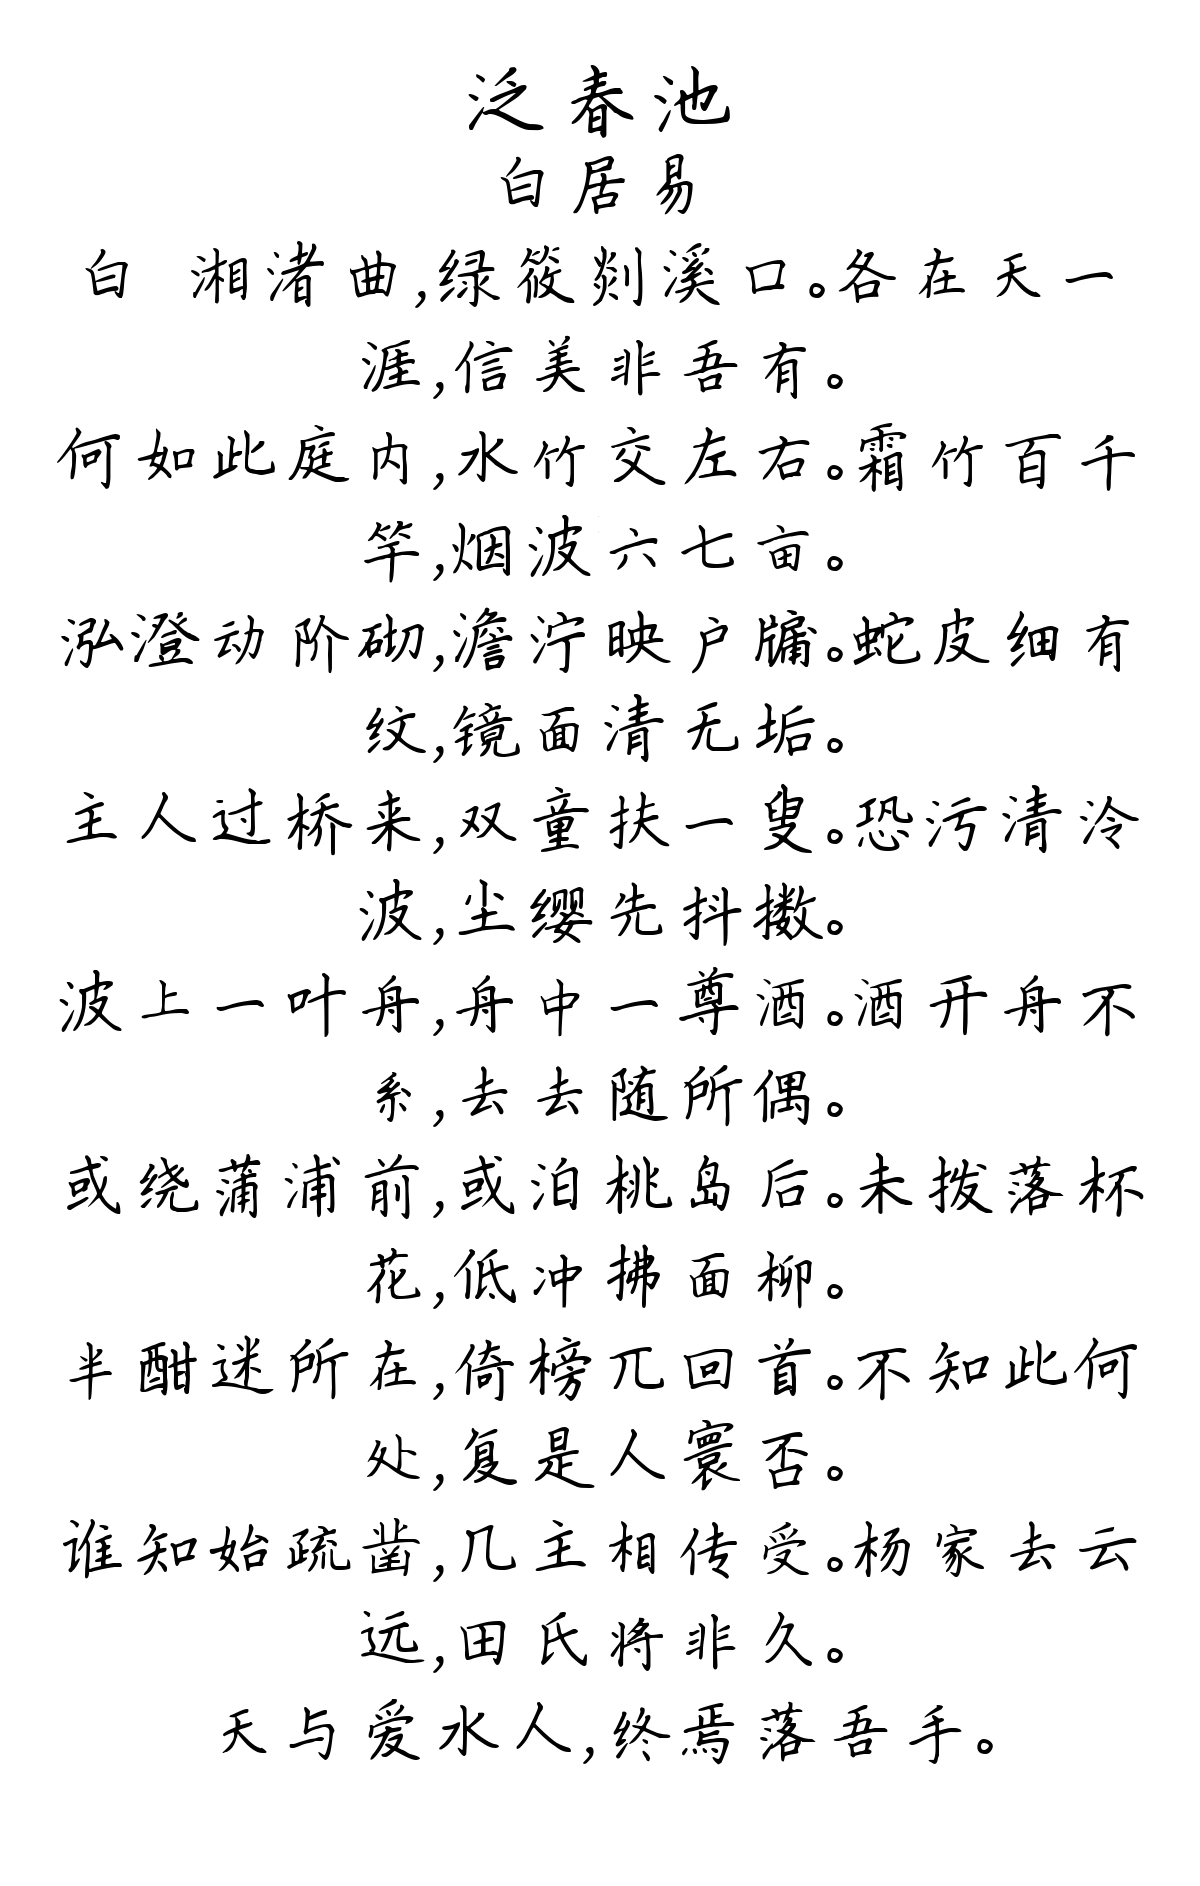 泛春池
白居易
白 湘渚曲,绿筱剡溪口。各在天一
涯,信美非吾有。
何如此庭内,水竹交左右。霜竹百千
竿,烟波六七亩。
泓澄动阶砌,澹泞映户牖。蛇皮细有
纹,镜面清无垢。
主人过桥来,双童扶一叟。恐污清泠
波,尘缨先抖擞。
波上一叶舟,舟中一尊酒。酒开舟不
系,去去随所偶。
或绕蒲浦前,或泊桃岛后。未拨落杯
花,低冲拂面柳。
半酣迷所在,倚榜兀回首。不知此何
处,复是人寰否。
谁知始疏凿,几主相传受。杨家去云
远,田氏将非久。
天与爱水人,终焉落吾手。